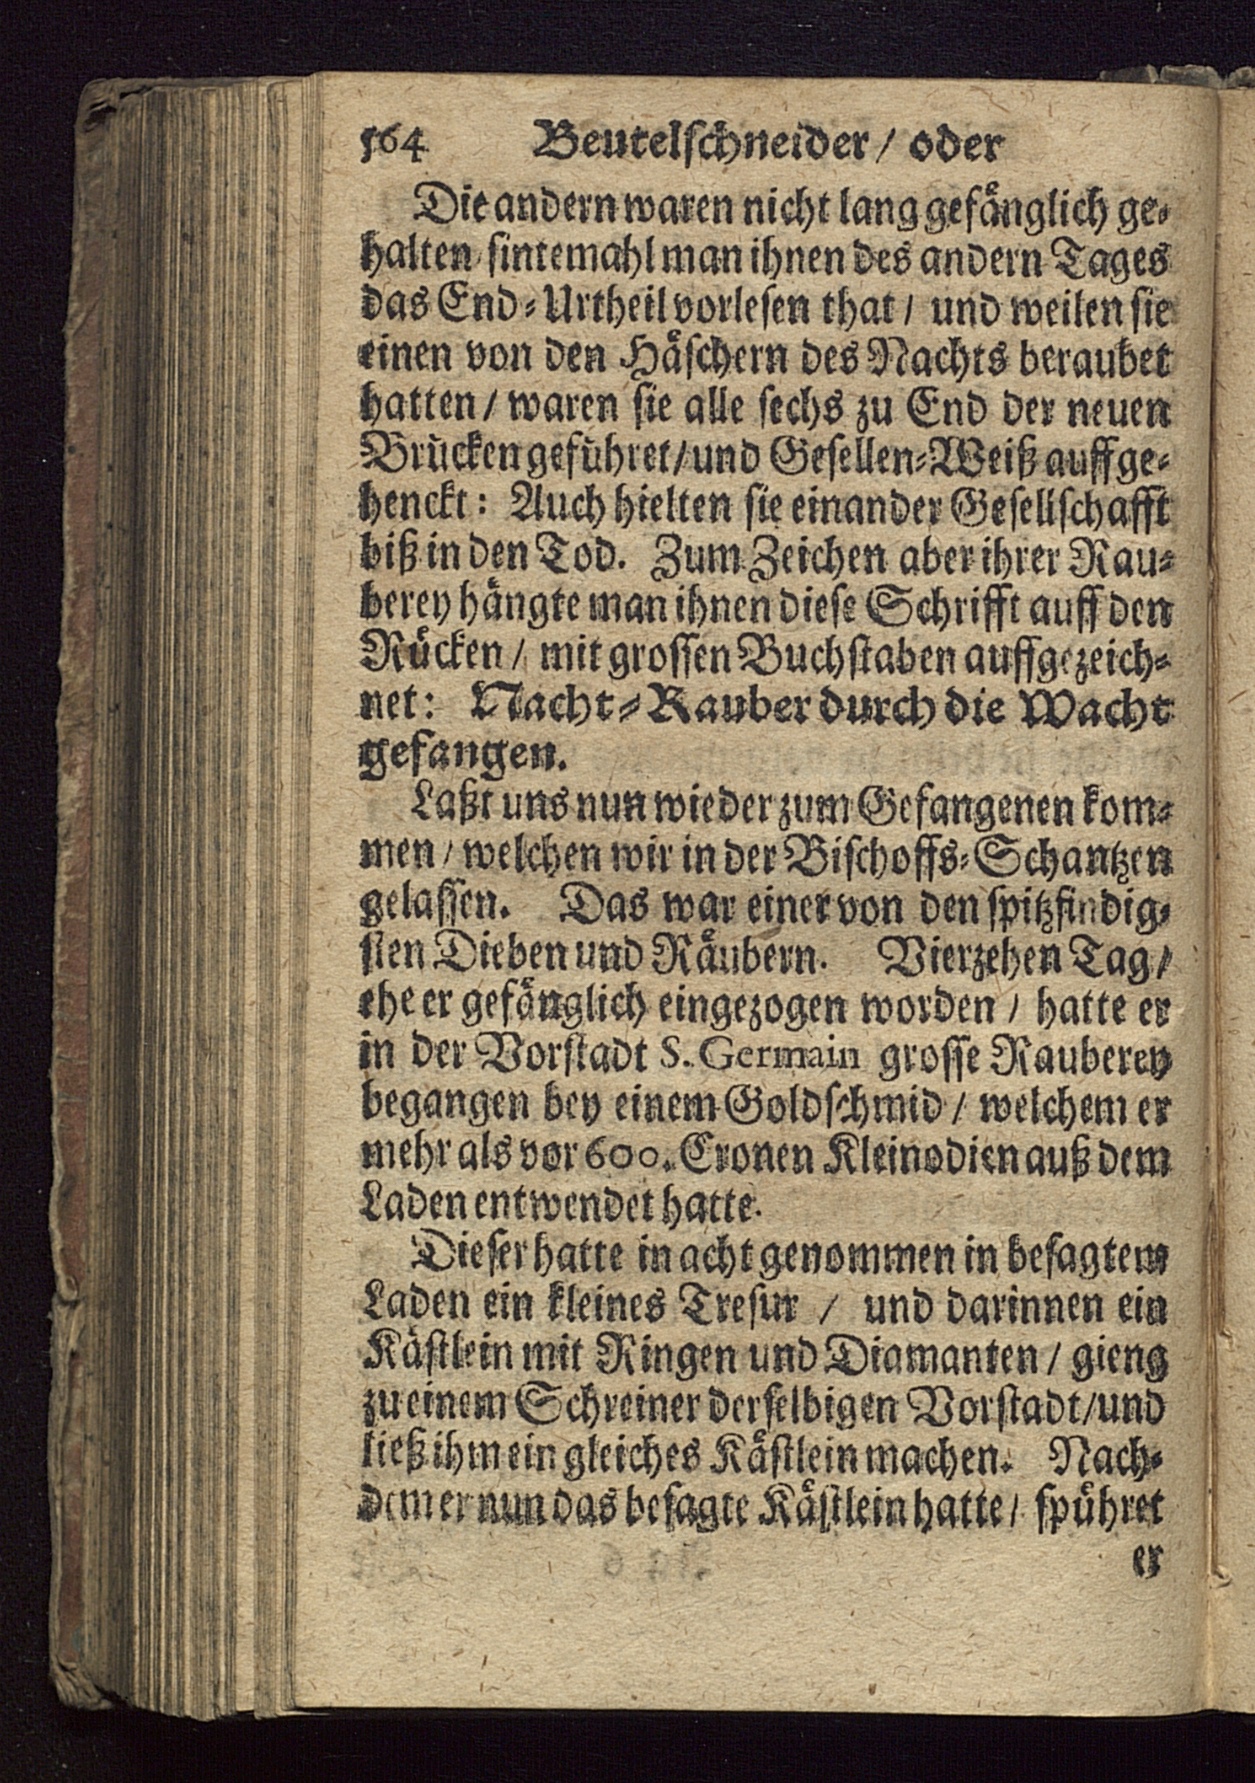 564 Beutelschneider / oder
Die andern waren nicht lang gefänglich ge-
halten / sintemahl man ihnen des andern Tages
das End-Urtheil vorlesen that / und weilen sie
einen von den Häschern des Nachts beraubet
hatten / waren sie alle sechs zu End der neuen
Brücken geführet / und Gesellen-Weiß auffge-
henckt: Auch hielten sie einander Gesellschafft
biß in den Tod. Zum Zeichen aber ihrer Rau-
berey hängte man ihnen diese Schrifft auff den
Rücken / mit grossen Buchstaben auffgezeich-
net: Nacht-Rauber durch die Wacht
gefangen.
Laßt uns nun wieder zum Gefangenen kom-
men / welchen wir in der Bischoffs-Schantzen
gelassen. Das war einer von den spitzfindig-
sten Dieben und Räubern. Vierzehen Tag /
ehe er gefänglich eingezogen worden / hatte er
in der Vorstadt S. Germain grosse Rauberey
begangen bey einem Goldschmid / welchem er
mehr als vor 600. Cronen Kleinodien auß dem
Laden entwendet hatte.
Dieser hatte in acht genommen in besagtem
Laden ein kleines Tresur / und darinnen ein
Kästlein mit Ringen und Diamanten / gieng
zu einem Schreiner derselbigen Vorstadt / und
ließ ihm ein gleiches Kästlein machen. Nach-
dem er nun das besagte Kästlein hatte / spühret
er